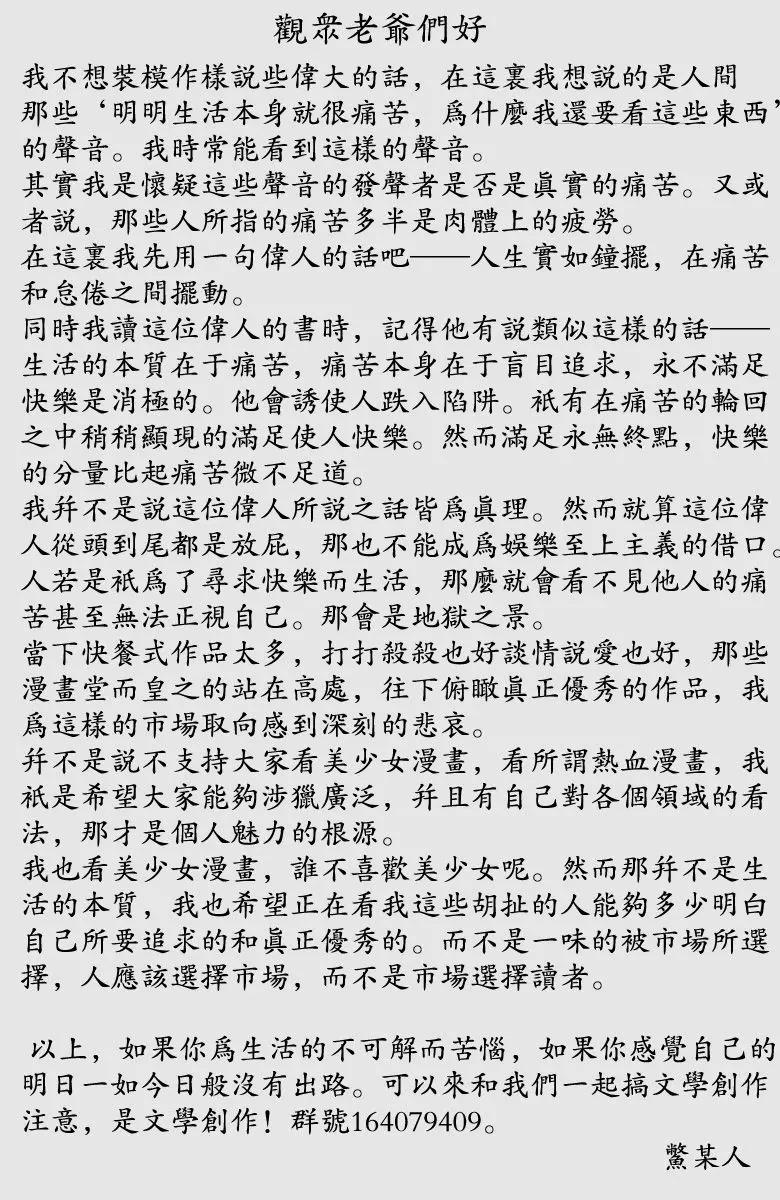 觀眾老爺們好
我不想裝模作樣説些偉大的話，在這裏我想説的是人間
那些‘明明生活本身就很痛苦，爲什麼我還要看這些東西’
的聲音。我時常能看到這樣的聲音。
其實我是懷疑這些聲音的發聲者是否是眞實的痛苦。又或
者説，那些人所指的痛苦多半是肉體上的疲勞。
在這裏我先用一句偉人的話吧——人生實如鐘擺，在痛苦
和怠倦之間擺動。
同時我讀這位偉人的書時，記得他有説類似這樣的話——
生活的本質在于痛苦，痛苦本身在于盲目追求，永不滿足
快樂是消極的。他會誘使人跌入陷阱。祇有在痛苦的輪回
之中稍稍顯現的滿足使人快樂。然而滿足永無終點，快樂
的分量比起痛苦微不足道。
我幷不是說這位偉人所説之話皆爲眞理。然而就算這位偉
人從頭到尾都是放屁，那也不能成爲娛樂至上主義的借口。
人若是祇爲了尋求快樂而生活，那麼就會看不見他人的痛
苦甚至無法正視自己。那會是地獄之景。
當下快餐式作品太多，打打殺殺也好談情説愛也好，那些
漫畫堂而皇之的站在高處，往下俯瞰眞正優秀的作品，我
爲這樣的市場取向感到深刻的悲哀。
幷不是説不支持大家看美少女漫畫，看所謂熱血漫畫，我
祇是希望大家能夠涉獵廣泛，幷且有自己對各個領域的看
法，那才是個人魅力的根源。
我也看美少女漫畫，誰不喜歡美少女呢。然而那幷不是生
活的本質，我也希望正在看我這些胡扯的人能夠多少明白
自己所要追求的和眞正優秀的。而不是一味的被市場所選
擇，人應該選擇市場，而不是市場選擇讀者。
以上，如果你爲生活的不可解而苦惱，如果你感覺自己的
明日一如今日般沒有出路。可以來和我們一起搞文學創作
注意，是文學創作！群號164079409。
鱉某人